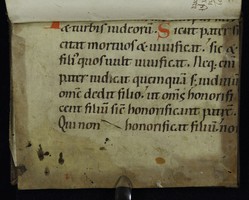 & turbis iudeorum. Sicut pater sus
citat mortuos & uiuificat. sic &
filius quos uult uiuificat. Neq; enim
pater iudicat quemquam s; iudicium
omne dedit filio. ut oms honorifi
cent filium sic honorificant patrem.
Qui non honorificat filium. no